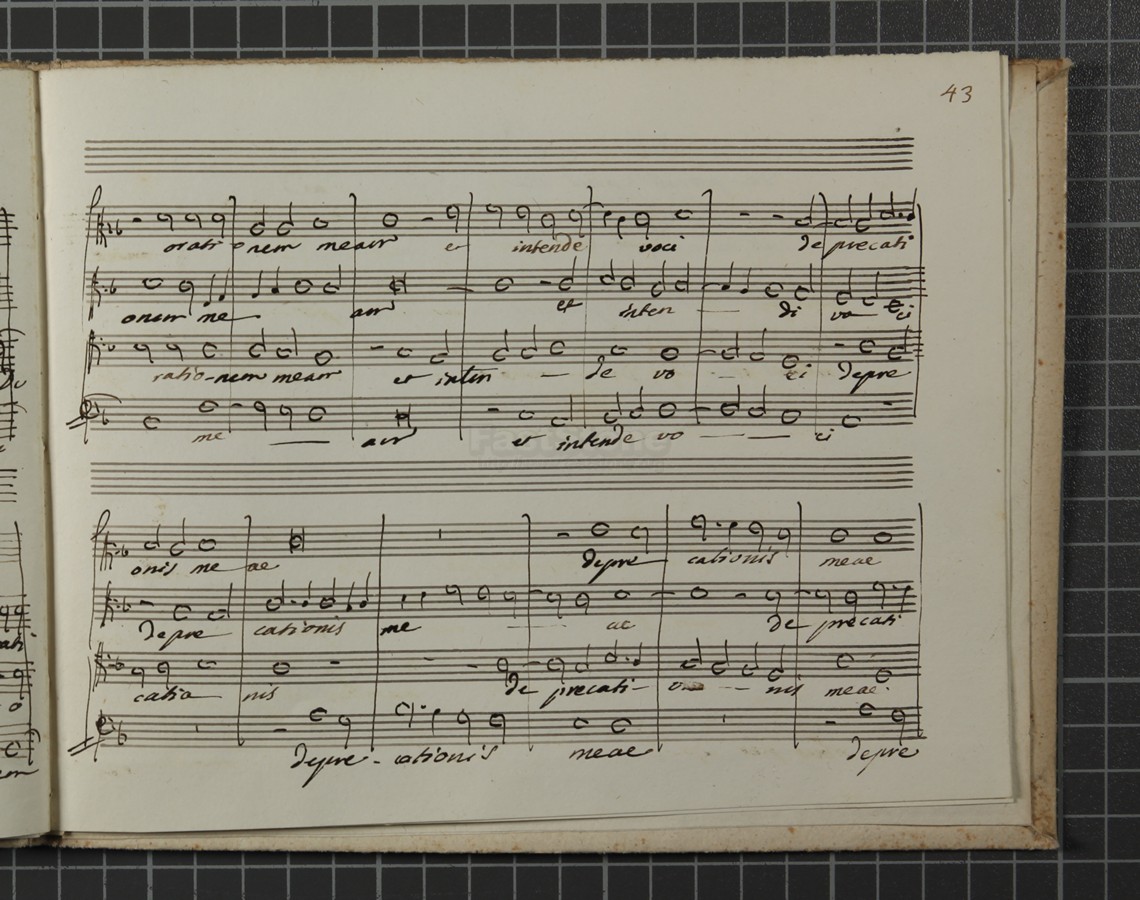 43
orati onem meam et intende voci deprecati
onem me am et inten di vo ci
ratio-nem meam et inten de vo ci depre
me am et intende vo ci
onis me ae depre cationis meae
depre cationis me ae de precati
catio nis de precati- o nis meae.
depre - cationis meae depre